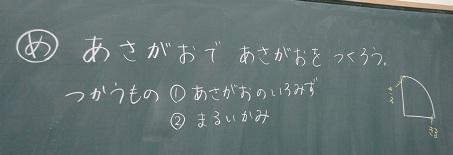 め あさがおで あさがおを つくろう。
つかうもの ① あさがおのいろみず
② まるいかみ